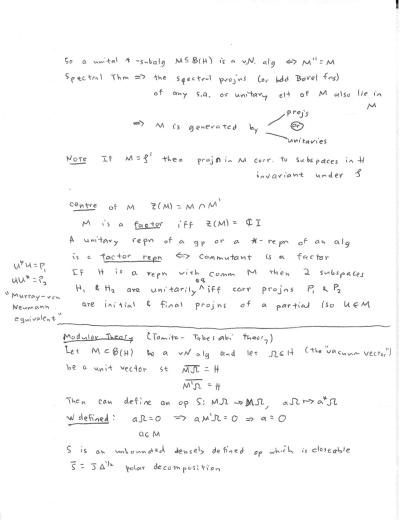 So a unital *-subalg M ⊆ B(H) is a v.N. alg ⇔ M'' = M
Spectral Thm ⇒ the spectral projns (or bdd Borel fns)
of any s.a. or unitary elt of M also lie in
M
⇒ M is generated by projs
or
unitaries
NOTE If M = S' then projn in M corr. to subspaces in H
invariant under S
centre of M Z(M) = M ∩ M'
M is a factor iff Z(M) = ℂI
A unitary repn of a gp or a *-repn of an alg
is a factor repn ⇔ commutant is a factor
If H is a repn with comm M then 2 subspaces
H₁ & H₂ are unitarily eq iff corr projns P₁ & P₂
are initial & final projns of a partial iso U ∈ M
U*U = P₁
UU* = P₂
"Murray-von
Neumann
equivalent"
Modular Theory (Tomita-Takesaki Theory)
Let M ⊂ B(H) be a vN alg and let Ω ∈ H (the "vacuum vector")
be a unit vector st MΩ = H
M'Ω = H
Then can define an op S: MΩ → MΩ, aΩ ↦ a*Ω
w defined: aΩ = 0 ⇒ aM'Ω = 0 ⇒ a = 0
a ∈ M
S is an unbounded densely defined op which is closeable
S̄ = JΔ^½ polar decomposition